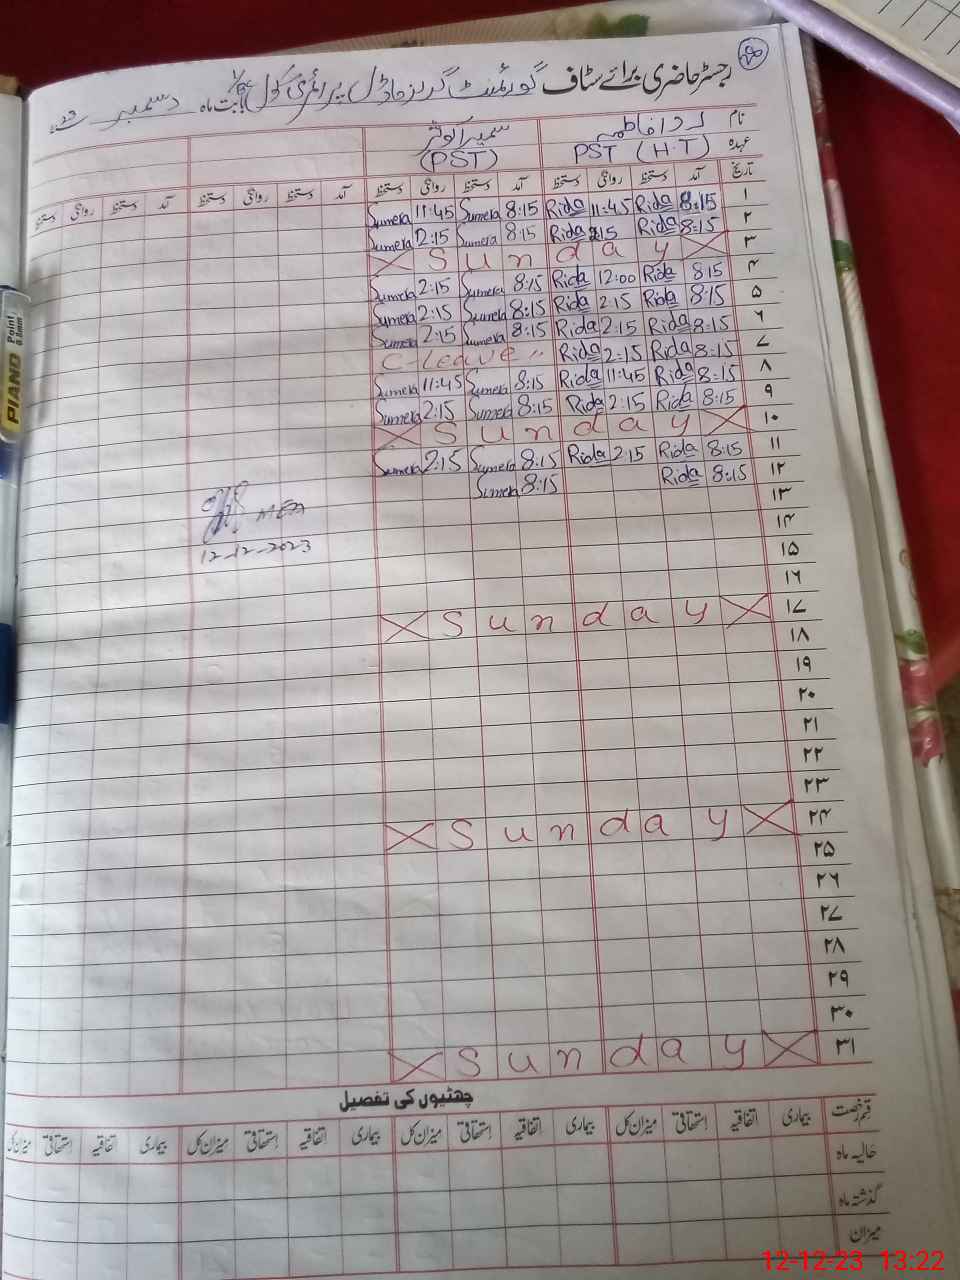 رجسٹر حاضری برائے سٹاف گورنمنٹ گرلز ماڈل پرائمری سکول بابت ماہ دسمبر
نام ردا فاطمہ سمیرا کوثر
عہدہ PST (H.T) (PST)
تاریخ آمد دستخط روانگی دستخط آمد دستخط روانگی دستخط آمد دستخط روانگی دستخط آمد دستخط روانگی دستخط
۱ 8:15 Rida 11:45 Rida 8:15 Sumera 11:45 Sumera
۲ 8:15 Rida 2:15 Rida 8:15 Sumera 2:15 Sumera
۳ Sunday
۴ 8:15 Rida 12:00 Rida 8:15 Sumera 2:15 Sumera
۵ 8:15 Rida 2:15 Rida 8:15 Sumera 2:15 Sumera
۶ 8:15 Rida 2:15 Rida 8:15 Sumera 2:15 Sumera
۷ 8:15 Rida 2:15 Rida C-Leave "
۸ 8:15 Rida 11:45 Rida 8:15 Sumera 11:45 Sumera
۹ 8:15 Rida 2:15 Rida 8:15 Sumera 2:15 Sumera
۱۰ Sunday
۱۱ 8:15 Rida 2:15 Rida 8:15 Sumera 2:15 Sumera
۱۲ 8:15 Rida 8:15 Sumera
۱۳
MEA
12-12-2023
۱۴
۱۵
۱۶
۱۷ Sunday
۱۸
۱۹
۲۰
۲۱
۲۲
۲۳
۲۴ Sunday
۲۵
۲۶
۲۷
۲۸
۲۹
۳۰
۳۱ Sunday
چھٹیوں کی تفصیل
قسم رخصت بیماری اتفاقیہ استحقاقی میزان کل بیماری اتفاقیہ استحقاقی میزان کل بیماری اتفاقیہ استحقاقی میزان کل بیماری اتفاقیہ استحقاقی میزان کل
حالیہ ماہ
گذشتہ ماہ
میزان
PIANO Point 0.8mm
12-12-23 13:22